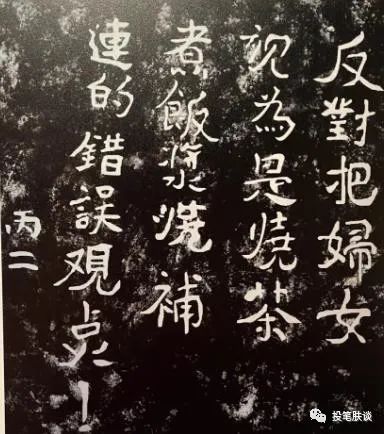 反對把婦女
視為是燒茶
煮飯漿洗補
連的錯誤観点！
丙二
投笔肤谈